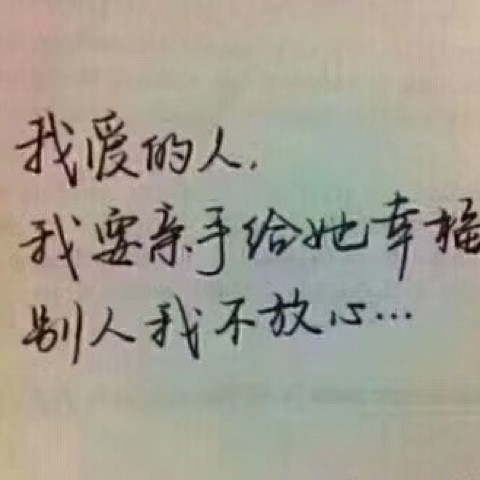 我爱的人.
我要亲手给她幸福
别人我不放心...